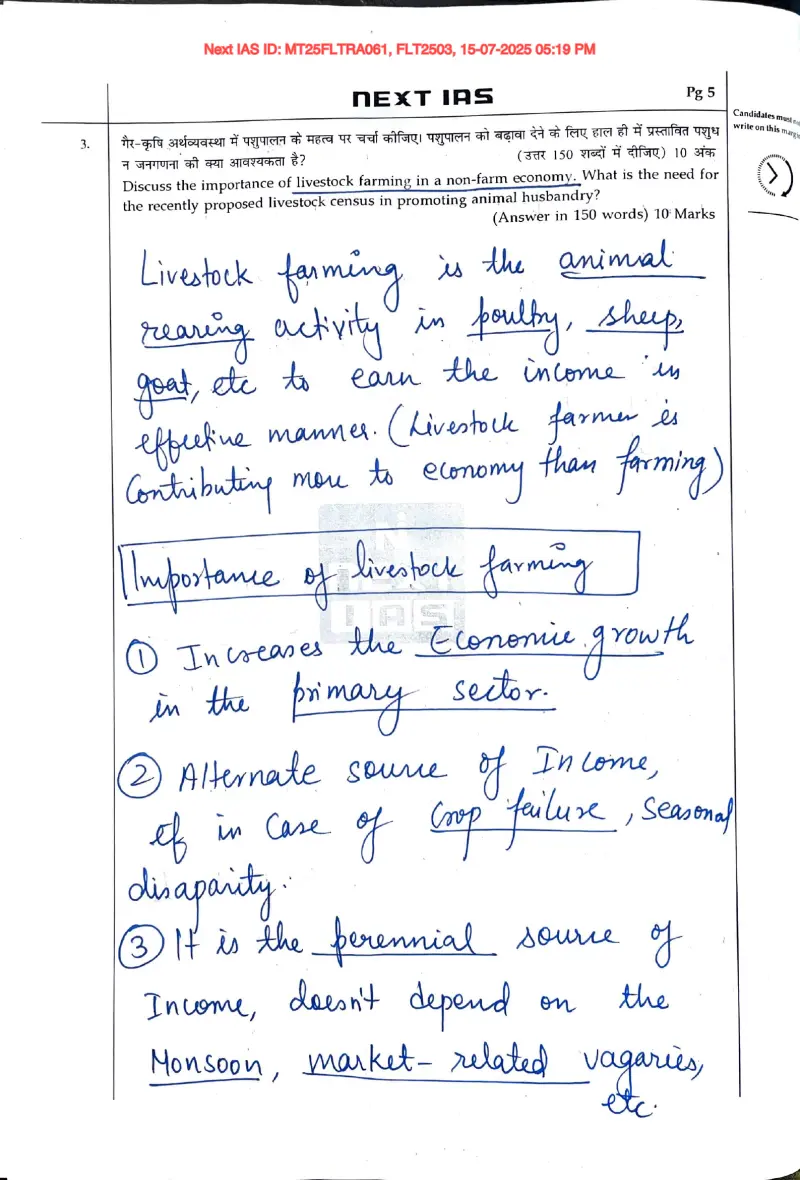 Next IAS ID: MT25FLTRA061, FLT2503, 15-07-2025 05:19 PM
NEXT IAS
Pg 5
Candidates must
write on this margin
3.
गैर-कृषि अर्थव्यवस्था में पशुपालन के महत्व पर चर्चा कीजिए। पशुपालन को बढ़ावा देने के लिए हाल ही में प्रस्तावित पशुध
न जनगणना की क्या आवश्यकता है? (उत्तर 150 शब्दों में दीजिए) 10 अंक
Discuss the importance of livestock farming in a non-farm economy. What is the need for
the recently proposed livestock census in promoting animal husbandry?
(Answer in 150 words) 10 Marks
Livestock farming is the animal
rearing activity in poultry, sheep,
goat, etc to earn the income in
effective manner. (Livestock farmer is
Contributing more to economy than farming)
Importance of livestock farming
① Increases the Economic growth
in the primary sector.
② Alternate source of Income,
if in case of crop failure, seasonal
disaparity.
③ It is the perennial source of
Income, doesn't depend on the
Monsoon, market-related vagaries,
etc.